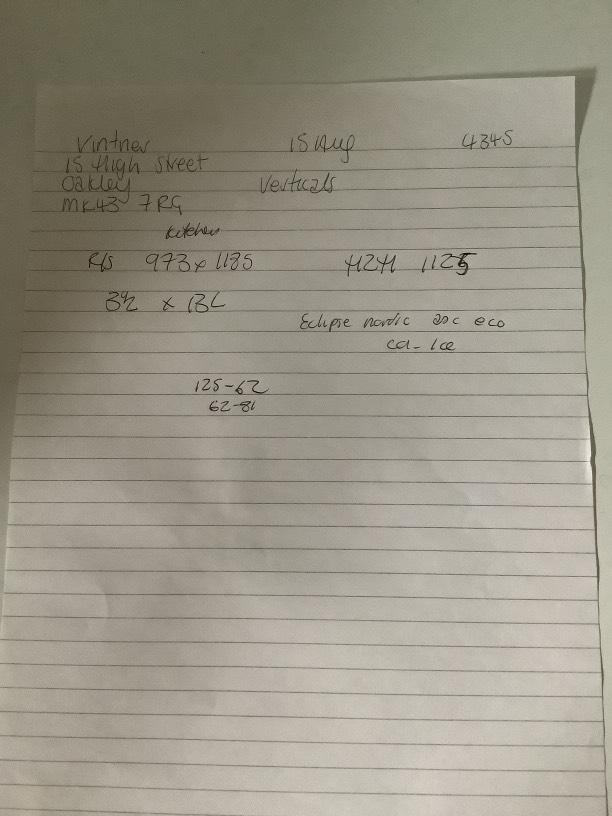 Vintner 15 Aug 4345
15 High Street
Oakley Verticals
MK43 7RG
Kitchen
R/S 973 x 1185 H2H 1125
3½ x 13L
Eclipse nordic eco
ca- Ice
125-62
62-81